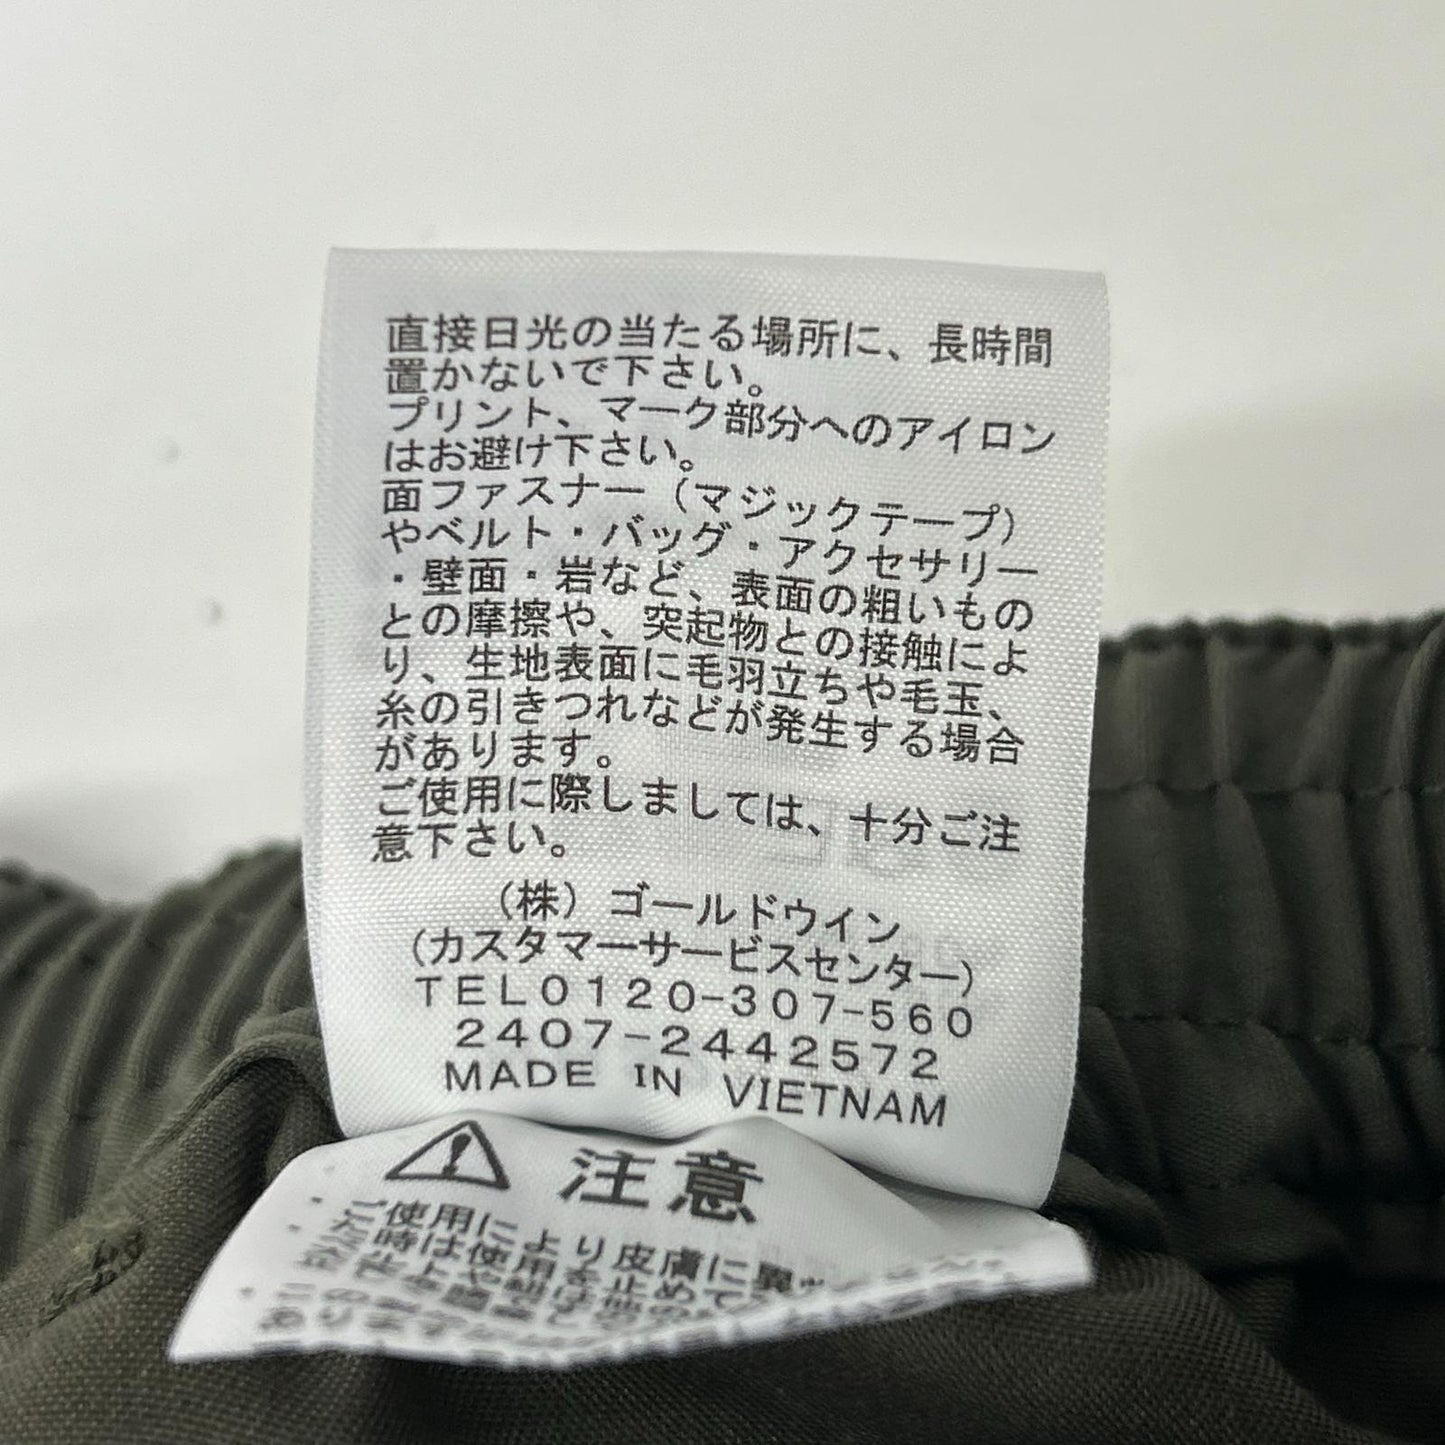 直接日光の当たる場所に、長時間
置かないで下さい。
プリント、マーク部分へのアイロン
はお避け下さい。
面ファスナー（マジックテープ）
やベルト・バッグ・アクセサリー
・壁面・岩など、表面の粗いもの
との摩擦や、突起物との接触によ
り、生地表面に毛羽立ちや毛玉、
糸の引きつれなどが発生する場合
があります。
ご使用に際しましては、十分ご注
意下さい。
（株）ゴールドウイン
（カスタマーサービスセンター）
TEL0120-307-560
2407-2442572
MADE IN VIETNAM
注意
・ご使用により皮膚に異
た時は使用を止めて